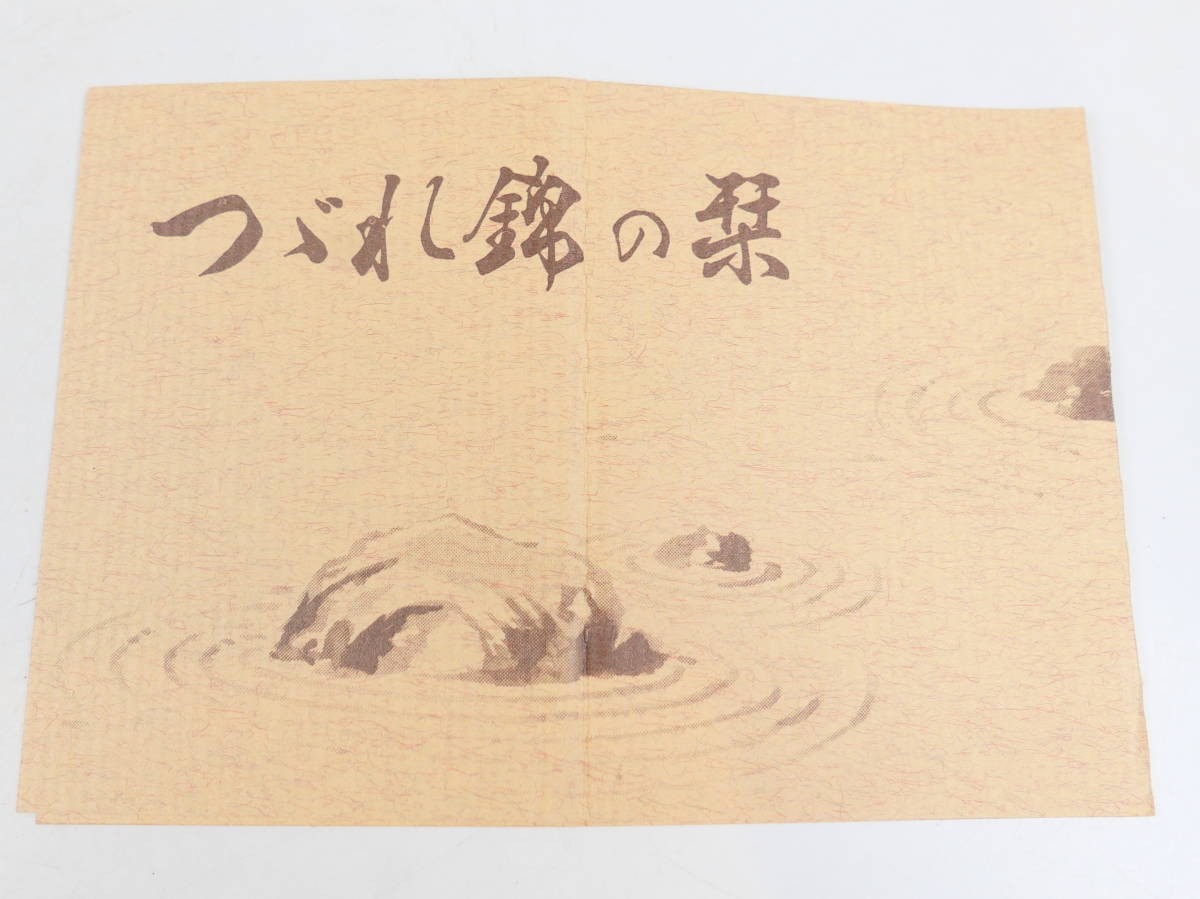 つゞれ錦の栞